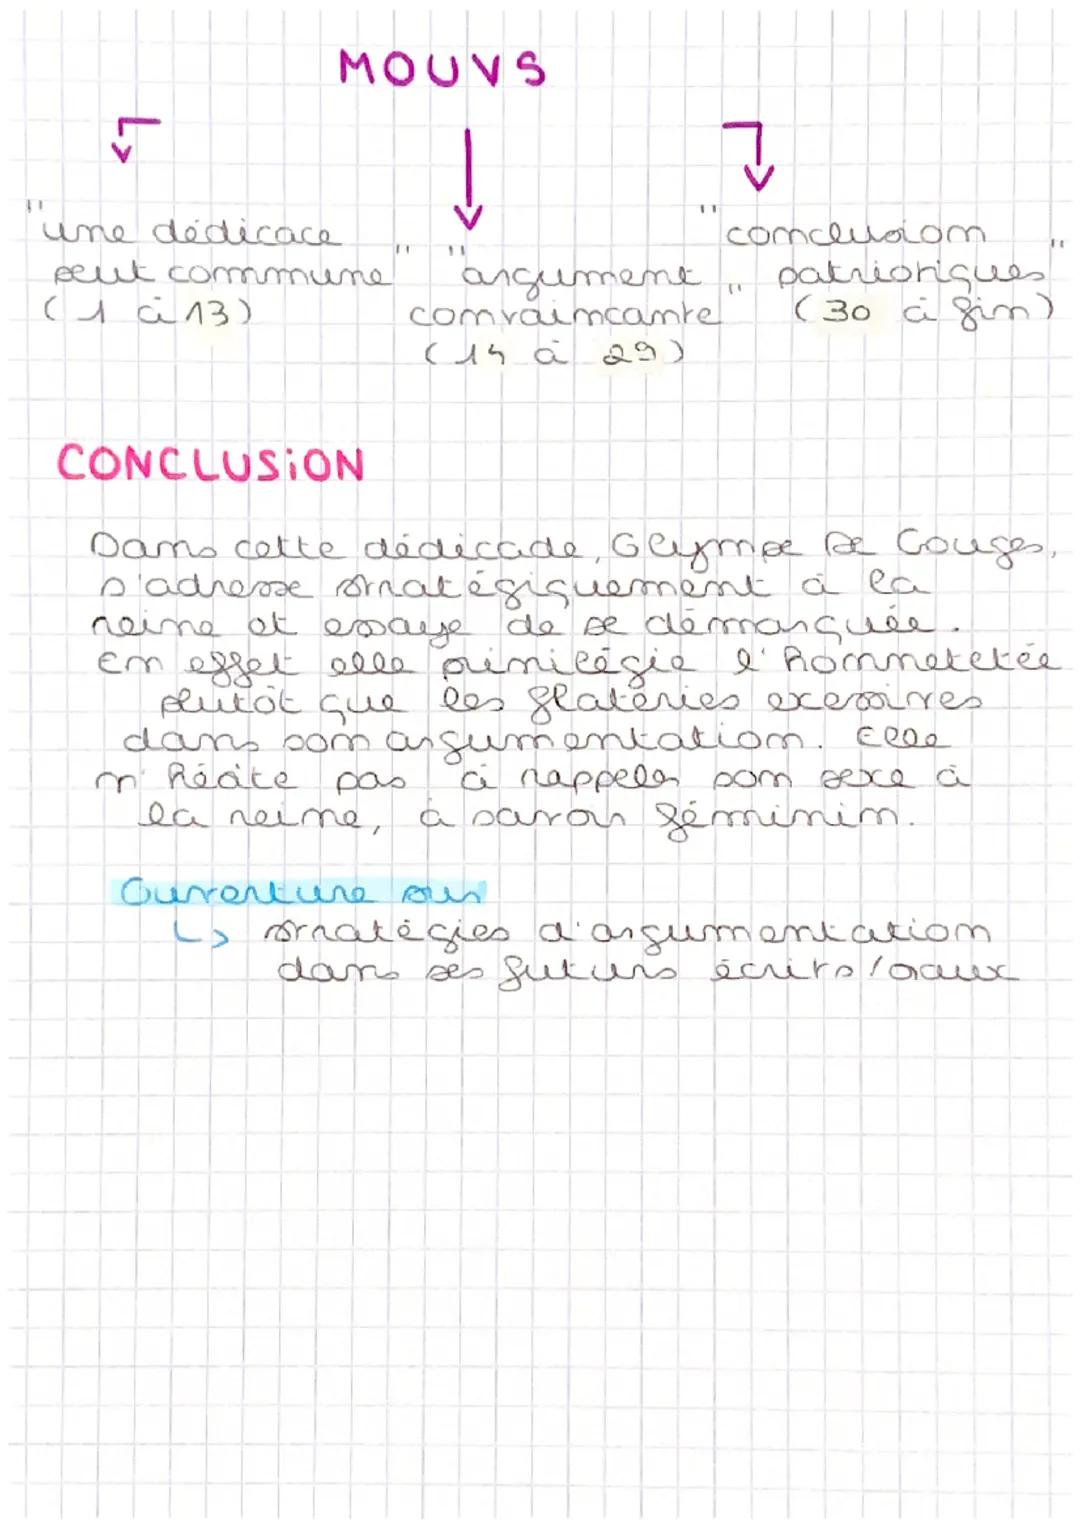 MOUVS
"une dédicace
peut commune"
(1 à 13)
"argument
convaincante"
(14 à 29)
"conclusion
patriotiques"
(30 à fin)
CONCLUSiON
Dans cette dédicade, Olympe De Gouges,
s'adresse stratégiquement à la
reine et essaye de se démarquée.
En effet elle privilégie l'honnetetée
plutôt que les flateries exessives
dans son argumentation. Elle
n'hésite pas à rappeler son sexe à
la reine, à savoir féminin.
Ouverture sur
↳ stratégies d'argumentation
dans ses futurs écrits/oraux